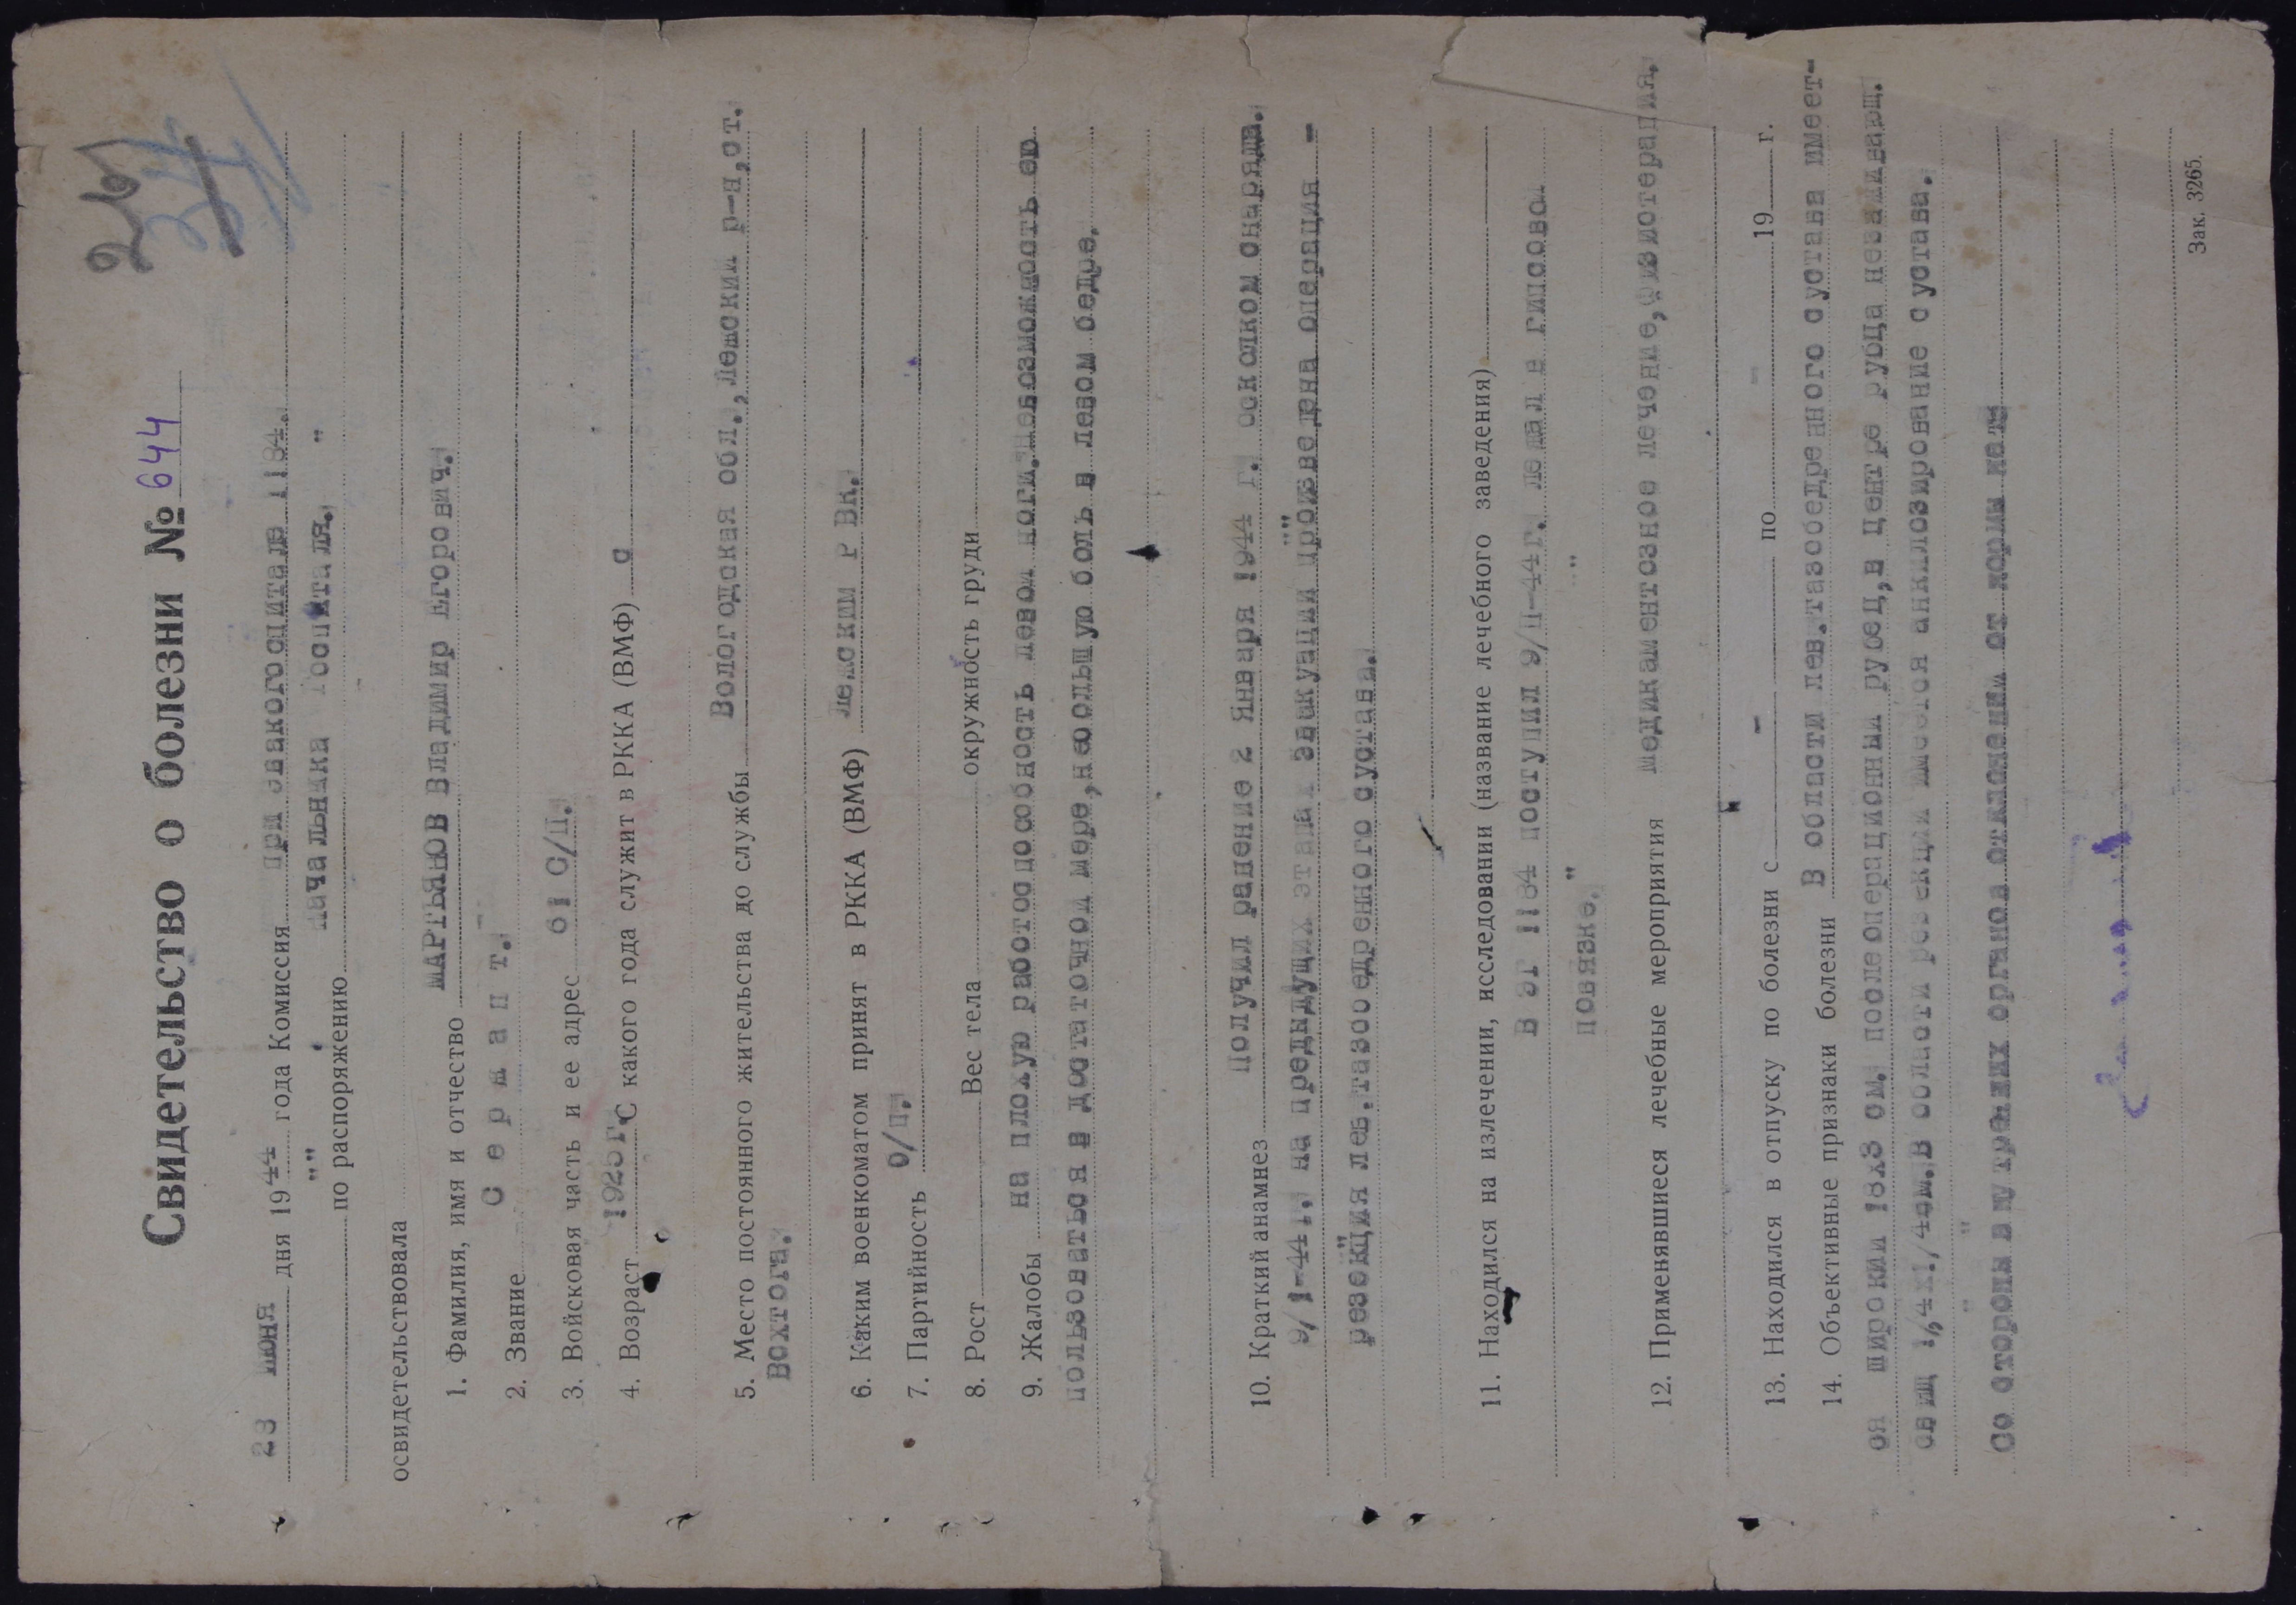 26
Свидетельство о болезни № 644
23 июня дня 1944 года Комиссия при эвакогоспитале 1184.
по распоряжению Начальника госпиталя. "
освидетельствовала
1. Фамилия, имя и отчество МАРТЬЯНОВ Владимир Егорович.
2. Звание С е р ж а н т.
3. Войсковая часть и ее адрес 61 С/П.
4. Возраст 1925 г. С какого года служит в РККА (ВМФ) с
5. Место постоянного жительства до службы Вологодская обл., Лежский р-н, ст.
Вохтога.
6. Каким военкоматом принят в РККА (ВМФ) Лежским Р Вк.
7. Партийность б/п.
8. Рост Вес тела окружность груди
9. Жалобы на плохую работоспособность левой ноги. невозможность ею
пользоваться в достаточной мере, небольшую боль в левом бедре.
10. Краткий анамнез Получил ранение 2 Января 1944 г. осколком снаряда.
9/1-44 г. на предыдущих этапах эвакуации произведена операция -
резекция лев. тазобедренного сустава.
11. Находился на излечении, исследовании (название лечебного заведения)
В ЭГ 1184 поступил 9/П-44г. лежал в гипсовой
повязке. "
12. Применявшиеся лечебные мероприятия медикаментозное лечение, физиотерапия.
13. Находился в отпуску по болезни с - по - 19 г.
14. Объективные признаки болезни В области лев. тазобедренного сустава имеет-
ся широкий 18х3 см. послеоперационный рубец, в центре рубца незаживающ.
свищ 1,4х1/4см. В области резекции имеется анкилозирование сустава.
Со стороны внутренних органов отклонений от нормы нет
Зак. 3265.